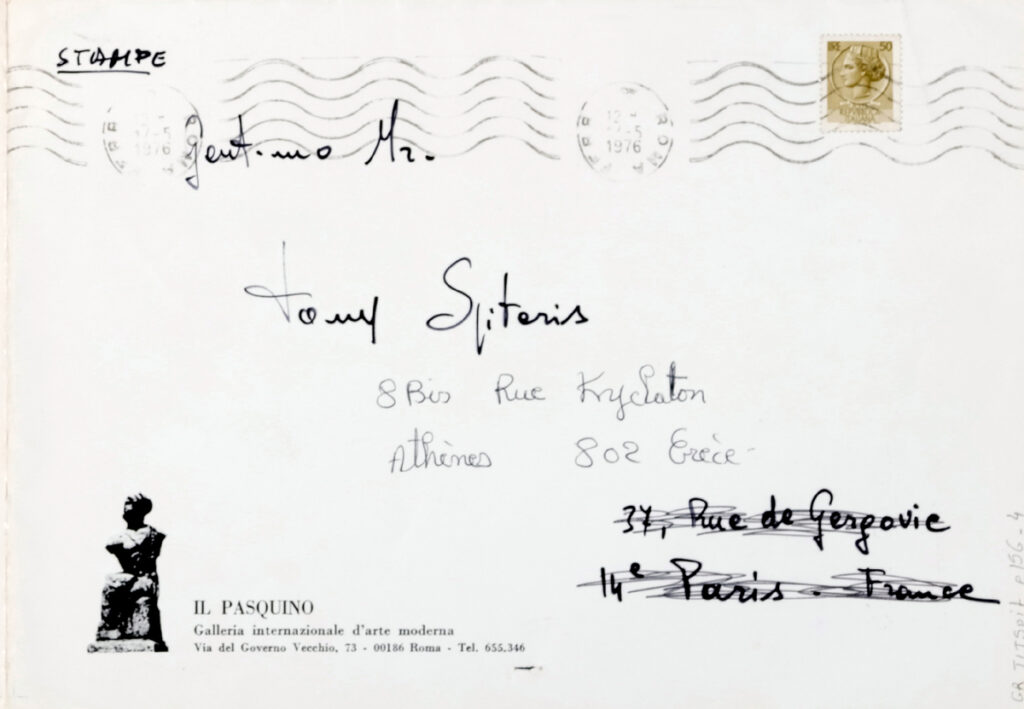 STAMPE
50
12-5
1976
12-
-5
1976
Gent.mo Mr.
Tony Spiteris
8 Bis Rue Kydaton
Athènes 802 Grèce
37, Rue de Gergovie
14e Paris . France
IL PASQUINO
Galleria internazionale d'arte moderna
Via del Governo Vecchio, 73 - 00186 Roma - Tel. 655.346